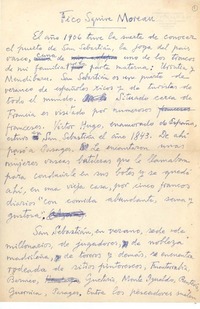 Paco Squire Morean
El año 1906 tuve la suerte de conocer
el puerto de San Sebastián, la joya del pais
vasco, uno de los troncos
de mi familia por parte materna; Horta, y
Mendibure. San Sebastián es un puerto de
veraneo de españoles ricos y de turistas de
todo el mundo. Situado cerca de
Francia es visiado por numerosos
franceses. Victor Hugo, enamorado de España,
estuvo en San Sebastián el año 1843. De ahí
pasó a Pasages. Le encantaron unas
mujeres vascas batileras que le llamaban
para conducirle en sus botes y se quedó
ahí, en una vieja casa, por cinco francos
diarios "con comida abundante, sana y
gustosa".
San Sebastián, en verano, sede de
millonarios, de jugadores, de nobleza
madrileña, de toreros y demás, se encuentra
rodeada de sitios pintorescos, Fuenterrabía,
Bermeo, Guetaria, Monte Igueldo,
Guernica, Pasages. Entre los pescadores